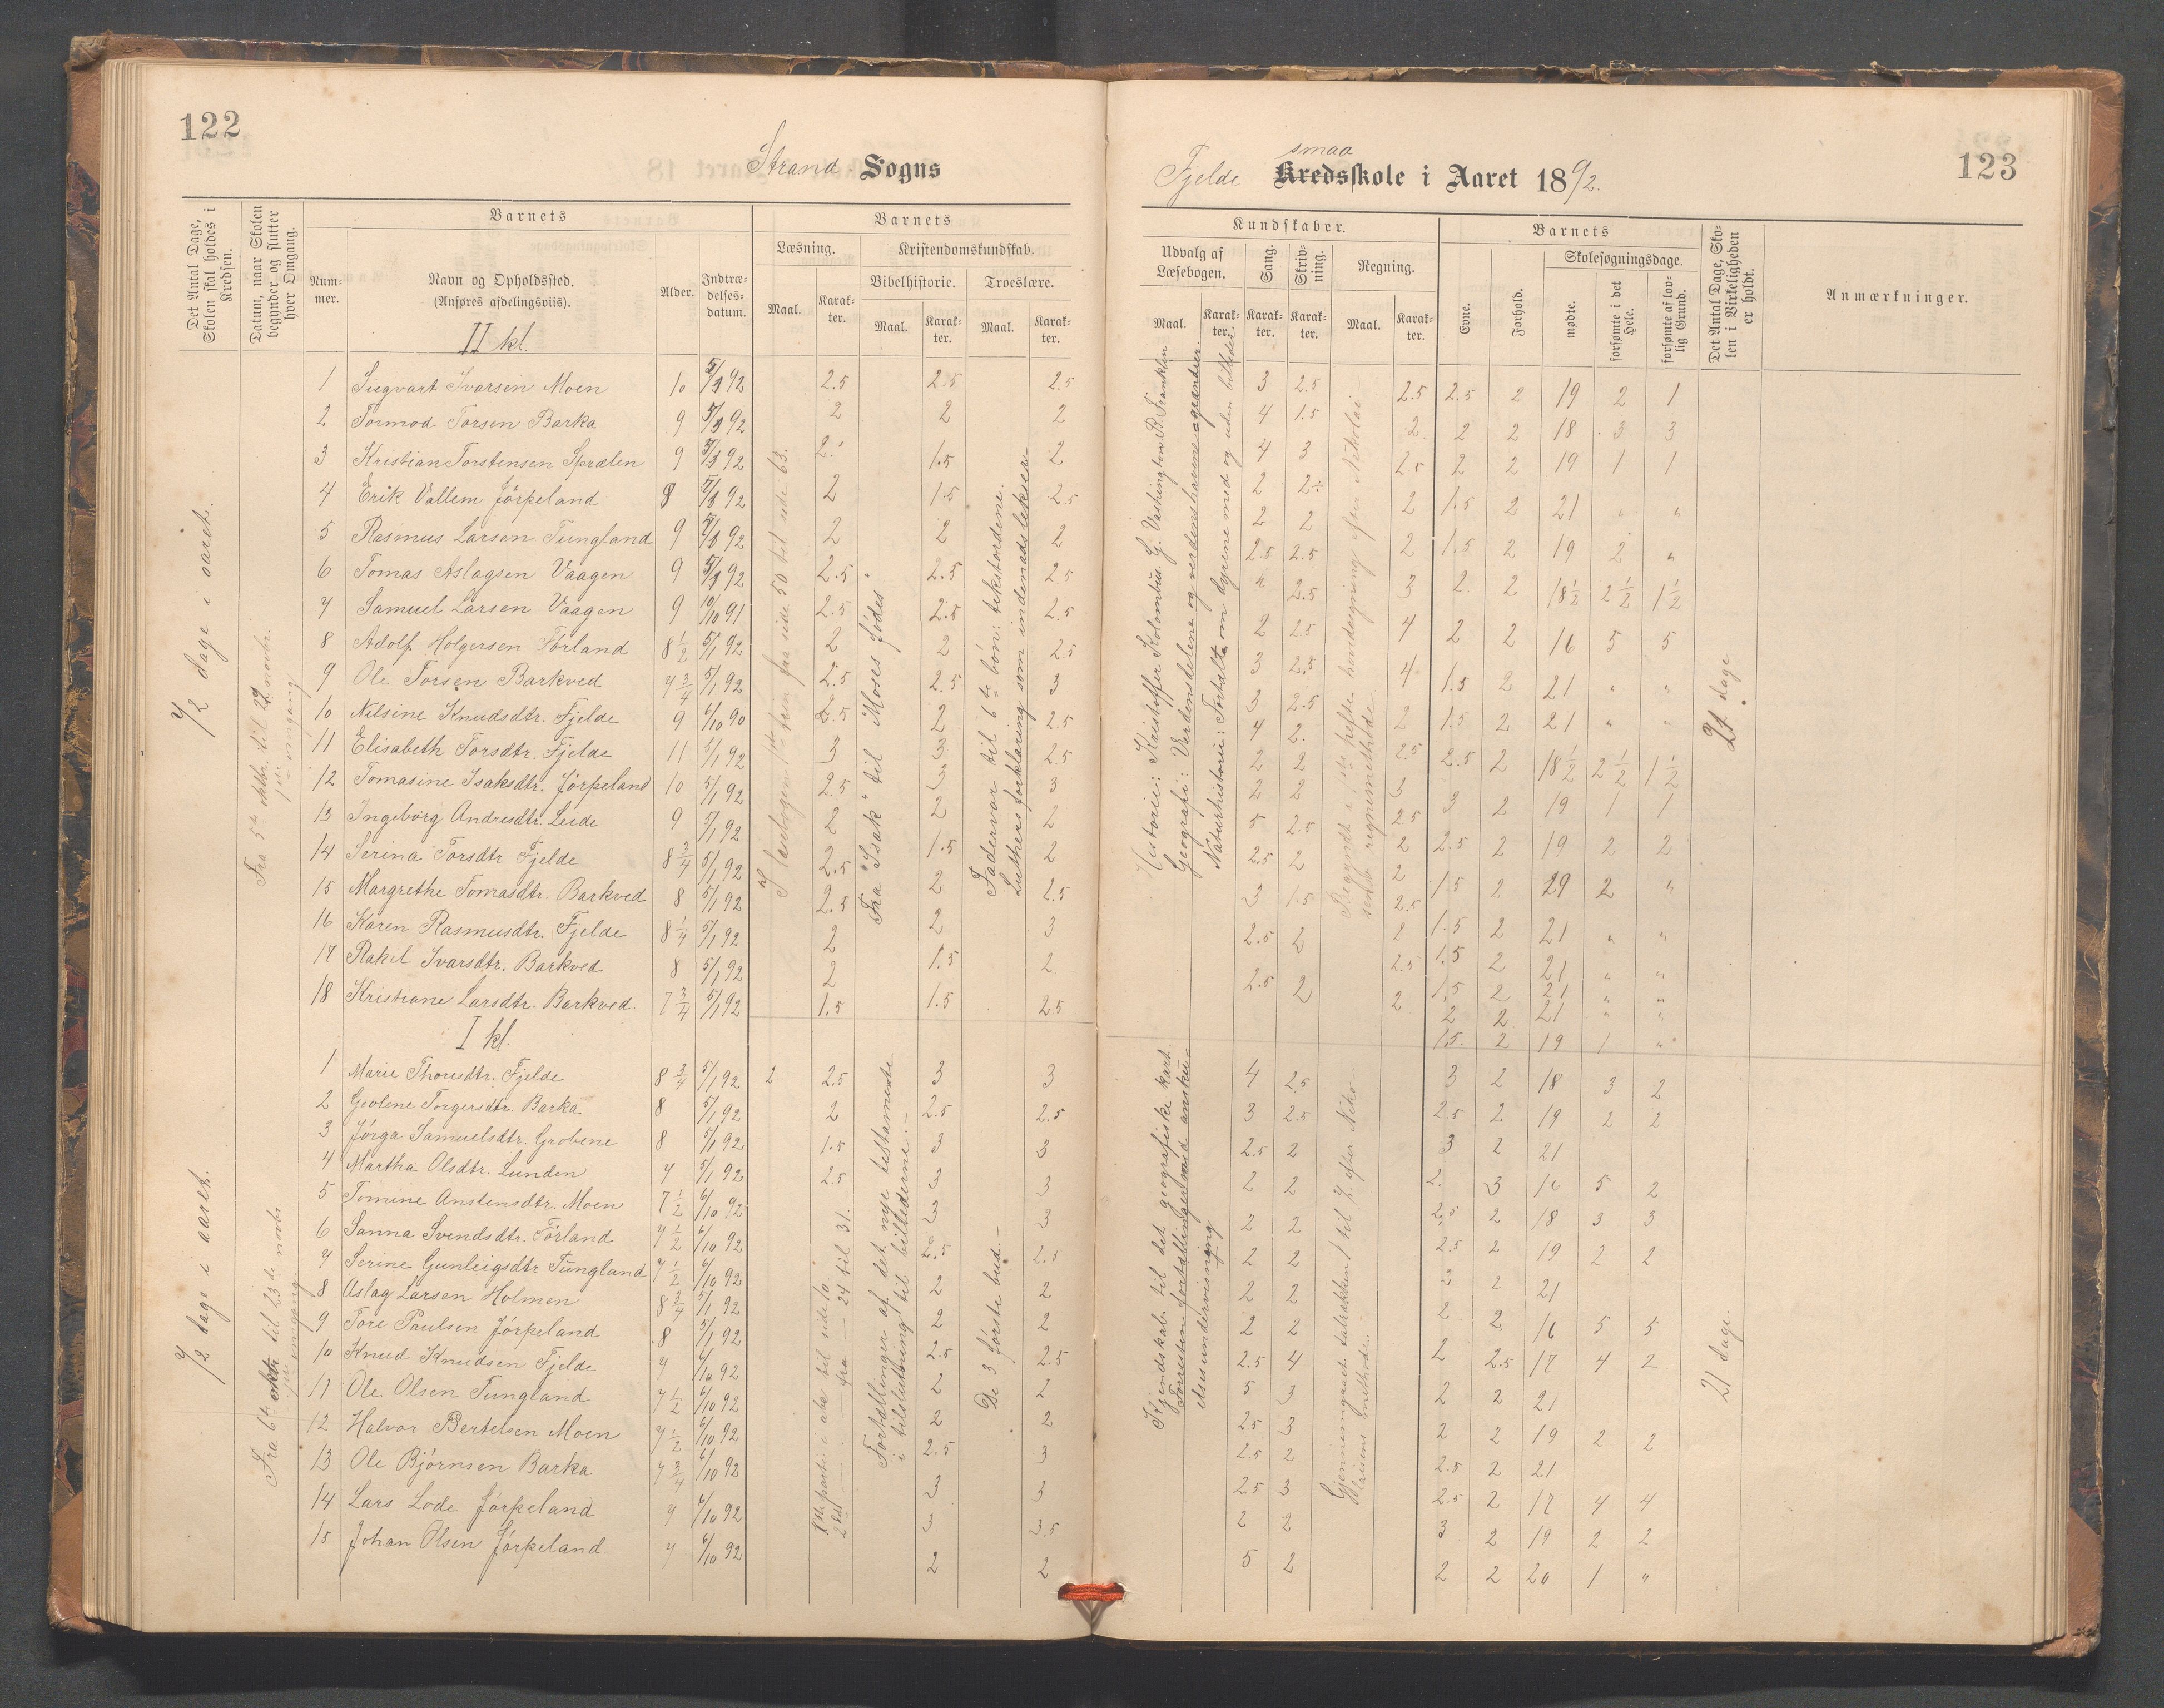 122
Strand Sogns
Det Antal Dage, Skolen skal holdes i Kredsen.
Datum, naar Skolen begynder og slutter hver Omgang.
Barnets
Nummer.
Navn og Opholdssted.
(Anføres afdelingsviis).
Alder.
Indtrædelsesdatum.
Barnets
Læsning.
Kristendomskundskab.
Bibelhistorie.
Troeslære.
Maal. Karakter. Maal. Karakter. Maal. Karakter.
II kl.
1 Sigvart Ivarsen Moen 10 5/1 92 2.5 2.5 2.5
2 Tormod Torsen Barka 9 5/1 92 2 2 2
3 Kristian Torstensen Sprælen 9 5/1 92 2. 1.5 2
4 Erik Vallem Jörpeland 8 5/1 92 2 1.5 2.5
5 Rasmus Larsen Tungland 9 5/1 92 2 2 2
6 Tomas Aslagsen Vaagen 9 5/1 92 2.5 2.5 2.5
7 Samuel Larsen Vaagen 9 10/10 91 2.5 2.5 2.5
8 Adolf Holgersen Förland 8 1/2 5/1 92 2 2 2.5
9 Ole Torsen Barkved 7 3/4 5/1 92 2.5 2.5 3
10 Nilsine Knudsdtr. Fjelde 9 6/10 90 2.5 2 2.5
11 Elisabeth Torsdtr. Fjelde 11 5/1 92 3 3 2.5
12 Tomasine Isaksdtr. Jörpeland 10 5/1 92 2.5 3 3
13 Ingeborg Andresdtr. Leide 9 5/1 92 2 2 2
14 Serina Torsdtr Fjelde 8 3/4 5/1 92 2.5 1.5 2
15 Margrethe Tomasdtr. Barkved 8 5/1 92 2.5 2 2.5
16 Karen Rasmusdtr. Fjelde 8 1/4 5/1 92 2 2 3
17 Rakel Ivarsdtr. Barkved 8 5/1 92 2 1.5 2
18 Kristiane Larsdtr. Barkved. 7 3/4 5/1 92 1.5 1.5 2.5
7/2 dage i aaret.
Fra 5te oktbr. til 29 novbr.
1ste omgang
I læsebogen 1ste trin fra side 50 til side 63.
Fra "Isak" til "Moses födes".
Fadervor til 6te bön: tekstordene.
Luthers forklaring som indenadslekser.
I kl.
1 Marie Thorsdtr. Fjelde 8 3/4 5/1 92 2 2.5 3 3
2 Gjoline Torgersdtr. Barka 8 5/1 92 2 2.5 2.5
3 Jörga Samuelsdtr. Grobene 8 5/1 92 1.5 3 3
4 Martha Olsdtr. Lunden 7 5/1 92 2.5 3 3
5 Tomine Anstensdtr. Moen 7 1/2 6/10 92 3 3
6 Sanna Svendsdtr. Förland 7 1/2 6/10 92 2.5 2.5
7 Serine Gunleigsdtr Tungland 7 1/2 6/10 92 2 2
8 Aslag Larsen Holmen 8 3/4 5/1 92 2 2
9 Tore Paulsen Jörpeland 8 5/1 92 2.5 2.5
10 Knud Knudsen Fjelde 7 6/10 92 2 2
11 Ole Olsen Tungland 7 1/2 6/10 92 2 2
12 Halvor Bertelsen Moen 7 1/2 6/10 92 2.5 3
13 Ole Björnsen Barka 7 3/4 6/10 92 3 3
14 Lars Lode Jörpeland 7 6/10 92 3 3.5
15 Johan Olsen Jörpeland 7 6/10 92 2 2
7/2 dage i aaret.
Fra 6te oktr til 23de novbr
1ste omgang
1ste parti: abc til side
2det — fra — 24 til 31.
Fortællinger af det nye testamente
i tilslutning til billederne.
De 3 förste bud.
123
Fjelde smaa Kredsskole i Aaret 1892.
Kundskaber.
Udvalg af Læsebogen.
Sang.
Skrivning.
Regning.
Maal. Karakter. Karakter. Karakter. Maal. Karakter.
Barnets
Evne.
Forhold.
Skolesøgningsdage.
mødte.
forsømte i det Hele.
forsømte af lovlig Grund.
Det Antal Dage, Skolen i Virkeligheden er holdt.
Anmærkninger.
Historie: Kristoffer Kolombus. G. Vashington. B. Franklin
Geografi: Verdensdelene og verdenshavene ogcandier.
Naturhistorie: Fortalt om dyrene med og uden billeder.
Begyndt i 1ste hefte hovedregning efter Nikolai-
sens regnemethode
3 2.5 2.5 2.5 2 19 2 1
4 1.5 2 2 2 18 3 3
4 3 2.5 2 2 19 1 1
2 2÷ 2 1.5 2 21 " "
2 2 2 1.5 2 19 2 "
2.5 2.5 3 2. 2 18 1/2 2 1/2 1 1/2
4 2.5 4 2 2 16 5 5
2 2.5 4 1.5 2 21 " "
3 2.5 2 1.5 2 21 " "
3 2.5 2.5 2.5 2 18 1/2 2 1/2 1 1/2
4 2. 3 3 2 19 1 1
2 2 2.5 2.5 2 19 2 2
2 2 2 1.5 2 29 2 "
5 2.5 2 1.5 2 21 " "
2.5 2 2.5 1.5 2 21 " "
3 1.5 2 1.5 2 21 " "
2.5 2 2.5 2 2 21 " "
2.5 2 2 1.5. 2 19 1 "
21 dage
Kjendskab til det geografiske kart.
Forresten fortællinger ved ansku-
elsesundervisning
Gjennemgaaet talrækken 1 til 7. efter Niko-
laisens methode.
4 2.5 3 2 18 3 2
3 2.5 2.5 2 19 2 2
2.5 2 3 2 21
2 2 2. 3 16 5 2
2 2 2.5 2 18 3 3
2 2 2.5 2 19 2 2
2 2 2 21
2 2 2 2 16 5 5
2.5 4 2 2.5 17 4 2
5 3 2 2 21
2.5 3 2 2 19 2 2
2.5 2 2.5 2 21
2.5 3 2.5 2 17 4 4
2 2 3 2 19 2 2
5 2 2 2 20 1 "
21 dage.